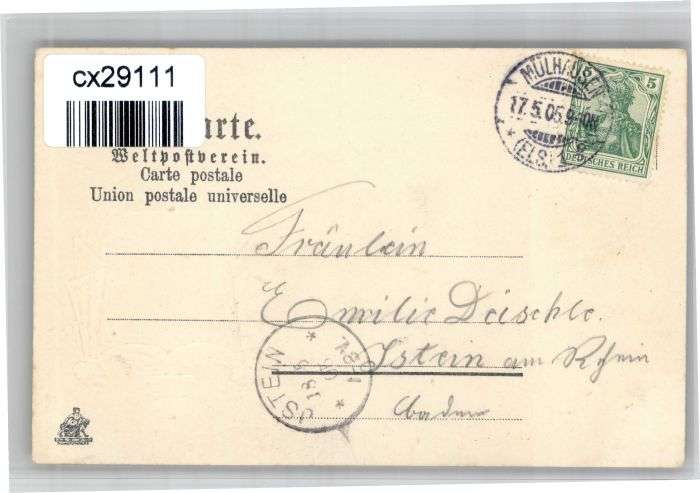 cx29111
arte.
Weltpostverein.
Carte postale
Union postale universelle
MÜLHAUSEN
17.5.05.9-10N
(ELS.)
5
DEUTSCHES REICH
Fräulein
Emilie Deischle.
Istein am Rhein
Baden
ISTEIN
18.5